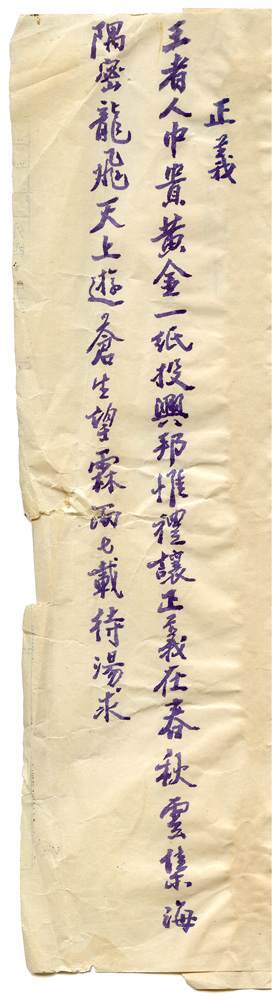 正義
王者人中貴黃金一紙投興邦惟禮讓正義在春秋雲集海
隅密龍飛天上遊蒼生望霖雨七載待湯求